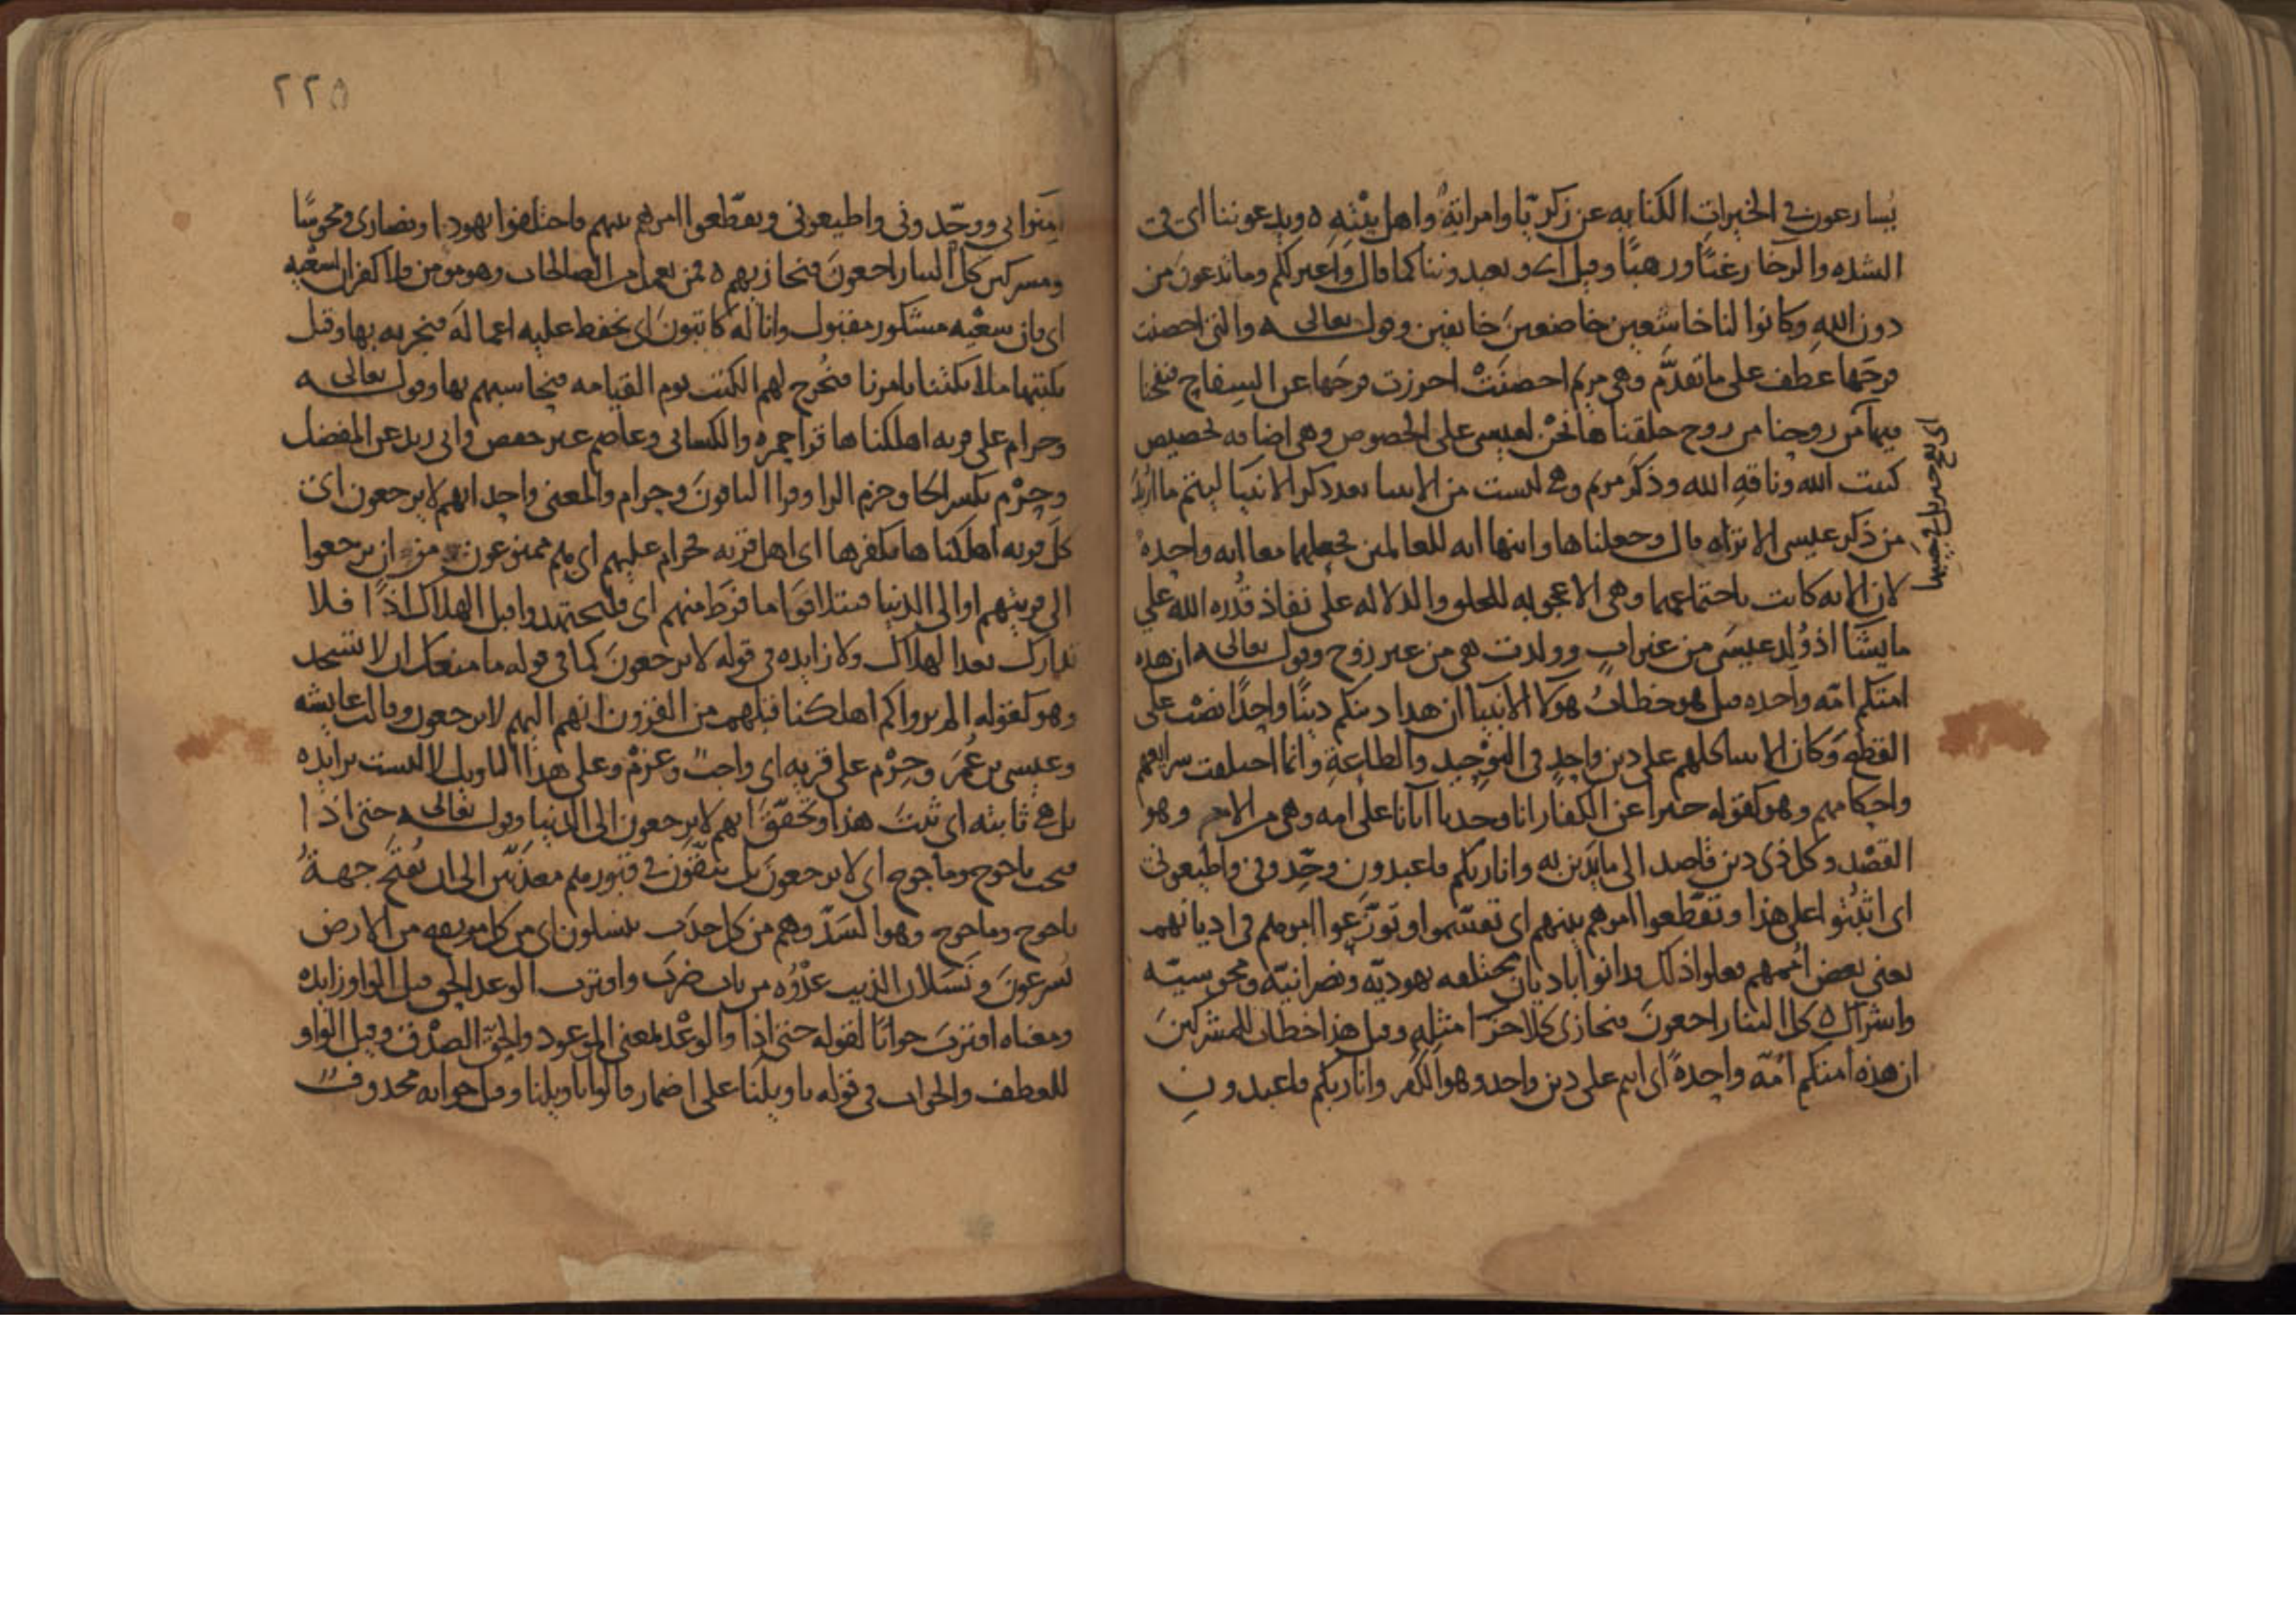 يسارعون في الخيرات الكناية عن زكريا وامرأته واهل بيته ه ويدعوننا اي في
الشده والرخا رغبا ورهبا وقيل اي ويعبدوننا كما قال واعتزلكم وما تدعون من
دون الله وكانوا لنا خاشعين خاضعين خايفين وقوله تعالى ه والتي احصنت
فرجها عطف على ما تقدم وهي مريم احصنت احرزت فرجها عن السفاح فنفخنا
فيها من روحنا من روح خلقناها نحن لعيسى على الخصوص وهي اضافه تخصيص
كبيت الله وناقه الله وذكر مريم وهي ليست من الانبيا بعد ذكر الانبيا ليتم ما اريد
من ذكر عيسى الا تراه قال وجعلناها وابنها ايه للعالمين فجعلهما معا ايه واحدة
لان الايه كانت باجتماعهما وهي الاعجوبه للخلق والدلاله على نفاذ قدره الله على
ما يشا اذ ولد عيسى من غير اب وولدت هي من غير زوج وقوله تعالى ه ان هذه
امتكم امه واحده قيل هو خطاب هولا الانبيا ان هذا دينكم دينا واحدا نصب على
القطع وكان الانبيا كلهم على دين واحد في التوحيد والطاعة وانما اختلفت شرايعهم
واحكامهم وهو كقوله خبرا عن الكفار انا وجدنا اباءنا على امه وهي من الام وهو
القصد وكل ذي دين قاصد الى ما يدين به وانا ربكم فاعبدون وحدوني واطيعوني
اي اثبتوا على هذا وتقطعوا امرهم بينهم اي تقسموا وتوزعوا امرهم في اديانهم
يعني بعض اممهم فعلوا ذلك ودانوا باديان مختلفه يهودية ونصرانية ومجوسية
واشراك ه كل الينا راجعون فنجازي كلا جزا مثله وقيل هذا خطاب للمشركين
ان هذه امتكم امه واحدة اي انتم على دين واحد وهو الكفر وانا ربكم فاعبدون
اي نفخ جبريل في جيبها
٢٢٥
امنوا بي ووحدوني واطيعوني وتقطعوا امرهم بينهم فاختلفوا يهودا ونصارى ومجوسا
ومشركين كل الينا راجعون فنجازيهم ه فمن يعمل من الصالحات وهو مومن فلا كفران لسعيه
اي فان سعيه مشكور مقبول وانا له كاتبون اي نحفظ عليه اعماله فنجزيه بها وقيل
يكتبها ملائكتنا بامرنا فنخرج لهم الكتب يوم القيامه فنحاسبهم بها وقوله تعالى ه
وحرام على قريه اهلكناها قرا حمزه والكسائي وعاصم غير حفص وابي زيد عن المفضل
وحرم بكسر الحا وجزم الرا وقرا الباقون وحرام والمعنى واحد انهم لا يرجعون اي
كل قريه اهلكناها بكفرها اي اهل قريه فحرام عليهم اي هم ممنوعون من ان يرجعوا
الى قريتهم او الى الدنيا فيتلافوا ما فرط منهم اي فليجتهدوا قبل الهلاك اذ ا فلا
تدارك بعد الهلاك ولا زايده في قوله لا يرجعون كما في قوله ما منعك ان لا تسجد
وهو كقوله الم يروا كم اهلكنا قبلهم من القرون انهم اليهم لا يرجعون وقالت عايشه
وعيسى بن عمر وحرم على قريه اي واجب وعزم وعلى هذا التاويل لا ليست بزايده
بل هي ثابته اي ثبت هذا وتحقق انهم لا يرجعون الى الدنيا وقوله تعالى ه حتى اذ ا
فتحت ياجوج وماجوج اي لا يرجعون بل يبقون في قبورهم معذبين الى ان تفتح جهة
ياجوج وماجوج وهو السد وهم من كل حدب ينسلون اي من كل مرتفع من الارض
يسرعون ونسلان الذيب عدوه من باب ضرب واقترب الوعد الحق قيل الواو زايده
ومعناه اقترب جوابا لقوله حتى اذا والوعد بمعنى الموعود والحق الصدق وقيل الواو
للعطف والجواب في قوله يا ويلنا على اضمار قالوا يا ويلنا وقيل جوابه محذوف